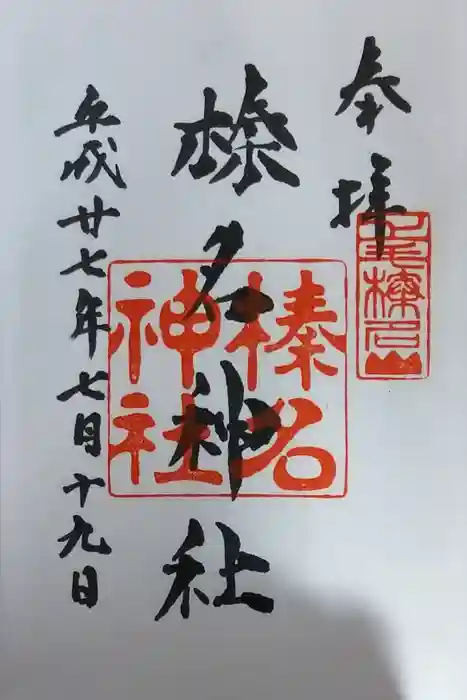 奉拝
上毛榛名山
榛名神社
榛名
神社
平成廿七年七月十九日